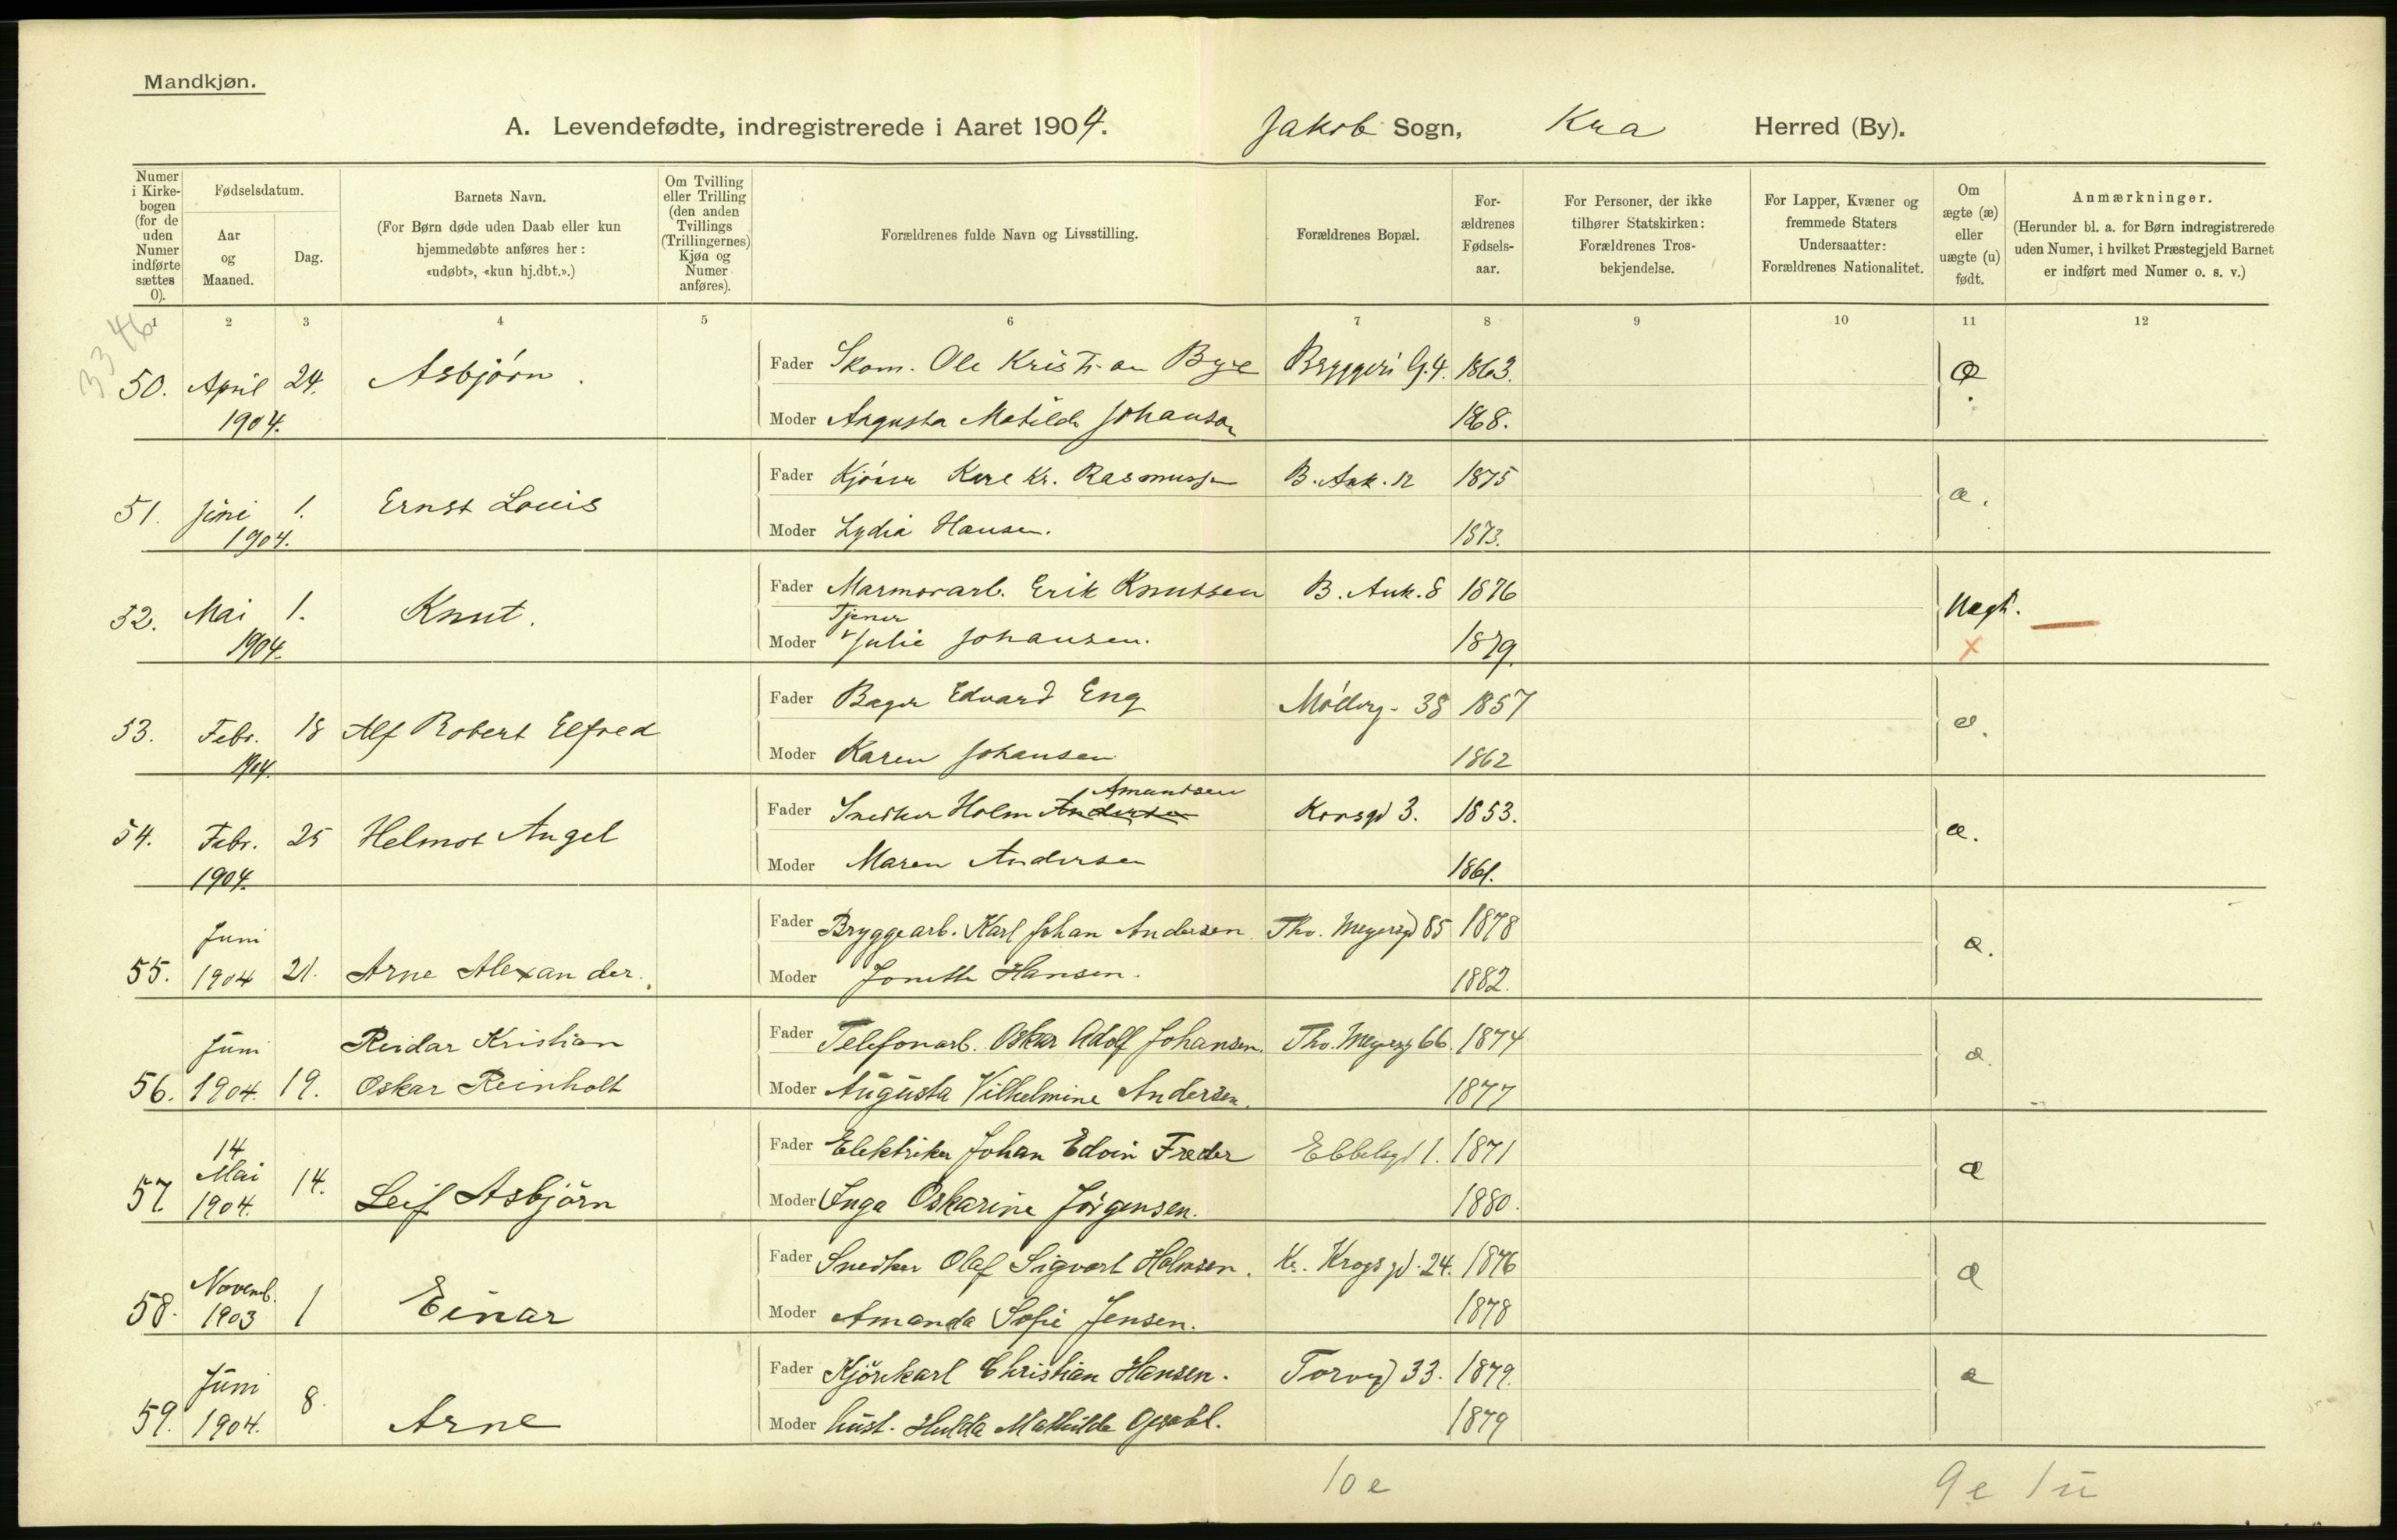 Mandkjøn.
A. Levendefødte, indregistrerede i Aaret 1904. Jakob Sogn, Kra Herred (By).
Numer i Kirkebogen (for de uden Numer indførte sættes 0).
Fødselsdatum.
Aar og Maaned.
Dag.
Barnets Navn.
(For Børn døde uden Daab eller kun hjemmedøbte anføres her: «udøbt», «kun hj.dbt.».)
Om Tvilling eller Trilling (den anden Tvillings (Trillingernes) Kjøn og Numer anføres).
Forældrenes fulde Navn og Livsstilling.
Forældrenes Bopæl.
Forældrenes Fødselsaar.
For Personer, der ikke tilhører Statskirken: Forældrenes Trosbekjendelse.
For Lapper, Kvæner og fremmede Staters Undersaatter: Forældrenes Nationalitet.
Om ægte (æ) eller uægte (u) født.
Anmærkninger.
(Herunder bl. a. for Børn indregistrerede uden Numer, i hvilket Præstegjeld Barnet er indført med Numer o. s. v.)
1 2 3 4 5 6 7 8 9 10 11 12
3346
50. April 1904. 24. Asbjørn.
Fader Skom. Ole Kristian Bye Bryggeri G. 4. 1863. æ
Moder Augusta Matilde Johanson 1868.
51. Juni 1904. 1. Ernst Louis
Fader Kjører Karl Kr. Rasmussen B. Ank. 12 1875 æ.
Moder Lydia Hansen. 1873.
52. Mai 1904. 1. Knut.
Fader Marmorarb. Erik Knutsen B. Ank. 8 1876 Uægt.
Tjener
Moder Julie Johansen. 1879. x
53. Febr. 1904. 18 Alf Robert Elfred
Fader Bager Edvard Eng Møllerg. 38 1857 æ.
Moder Karen Johansen 1862
54. Febr. 1904. 25 Helmot Angel
Amundsen
Fader Snedker Holm Andersen Korsgd 3. 1853. æ.
Moder Maren Andersen 1861.
55. Juni 1904 21. Arne Alexander.
Fader Bryggearb. Karl Johan Andersen. Thv. Meyersgd 85 1878 æ.
Moder Jonette Hansen. 1882.
56. Juni 1904. 19. Reidar Kristian
Oskar Reinholt
Fader Telefonarb. Oskar Adolf Johansen. Thv. Meyersg 66. 1874 æ.
Moder Augusta Vilhelmine Andersen. 1877
57. 14 Mai 1904. 14. Leif Asbjörn
Fader Elektriker Johan Edvin Fræder Ebbelsgd 1. 1871 æ
Moder Inga Oskarine Jörgensen. 1880.
58. Novemb. 1903 1 Einar
Fader Snedker Olaf Sigvart Holmsen. Kr. Krogs gd. 24. 1876 æ
Moder Amanda Sofie Jensen. 1878
59. Juni 1904. 8. Arne
Fader Kjörekarl Christian Hansen. Torvgd 33. 1879. æ
Moder hust. Hulda Mathilde 1879
10 e 9 e 1 u